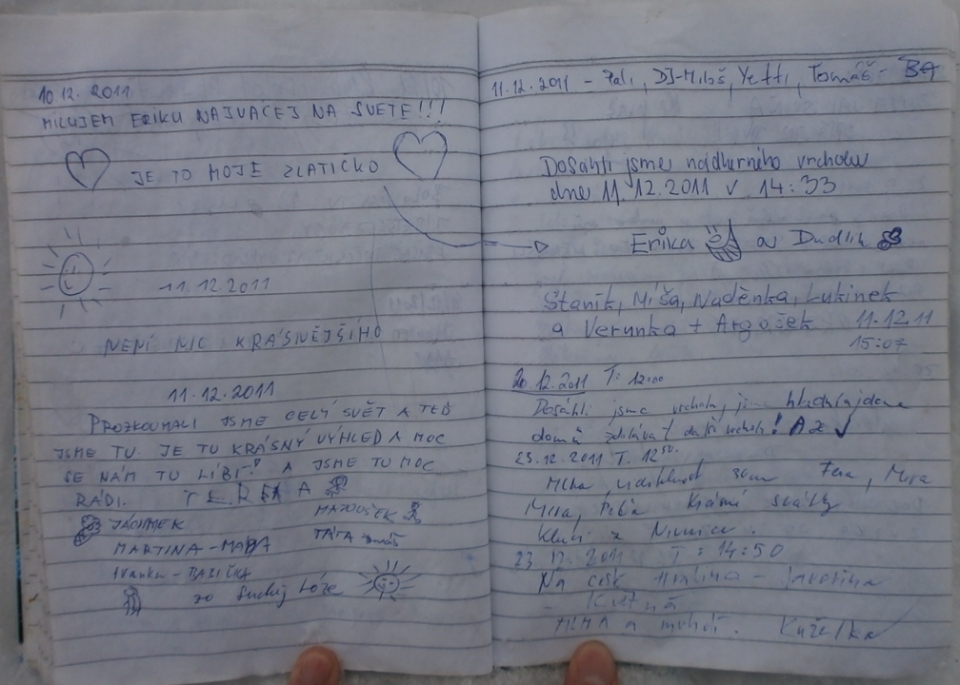 10.12.2011
MILUJEM ERIKU NAJVACEJ NA SVETE!!!
JE TO MOJE ZLATIČKO
11.12.2011
NENÍ NIC KRÁSNĚJŠÍHO
11.12.2011
PROZKOUMALI JSME CELÝ SVĚT A TEĎ
JSME TU. JE TU KRÁSNÝ VÝHLED A MOC
SE NÁM TU LÍBÍ. A JSME TU MOC
RÁDI. TEREZA
JÁCHYMEK MATOUŠEK
MARTINA - MAMA TÁTA
BABIČKA
zo Suchej Lóze
11.12.2011 - Pali, DJ-Miloš, Yetti, Tomáš - BA
Dosáhli jsme nádherného vrcholu
dne 11.12.2011 v 14:33
Erika a Dudlik
Staník, Míša, Naděnka, Lukinek
a Verunka + Argošek 11.12.11
15:07
20.12.2011 T: 12:00
Dosáhli jsme vrcholu, hladní
domů zdolávat další vrchol! AZ
23.12.2011 T. 12 50.
Mlha viditelnost
Mira, Krásné svátky
Kluci z Nivnice.
23.12.2011 T: 14:50
Na - Javořina
- Květná
MLHA a Kuželka